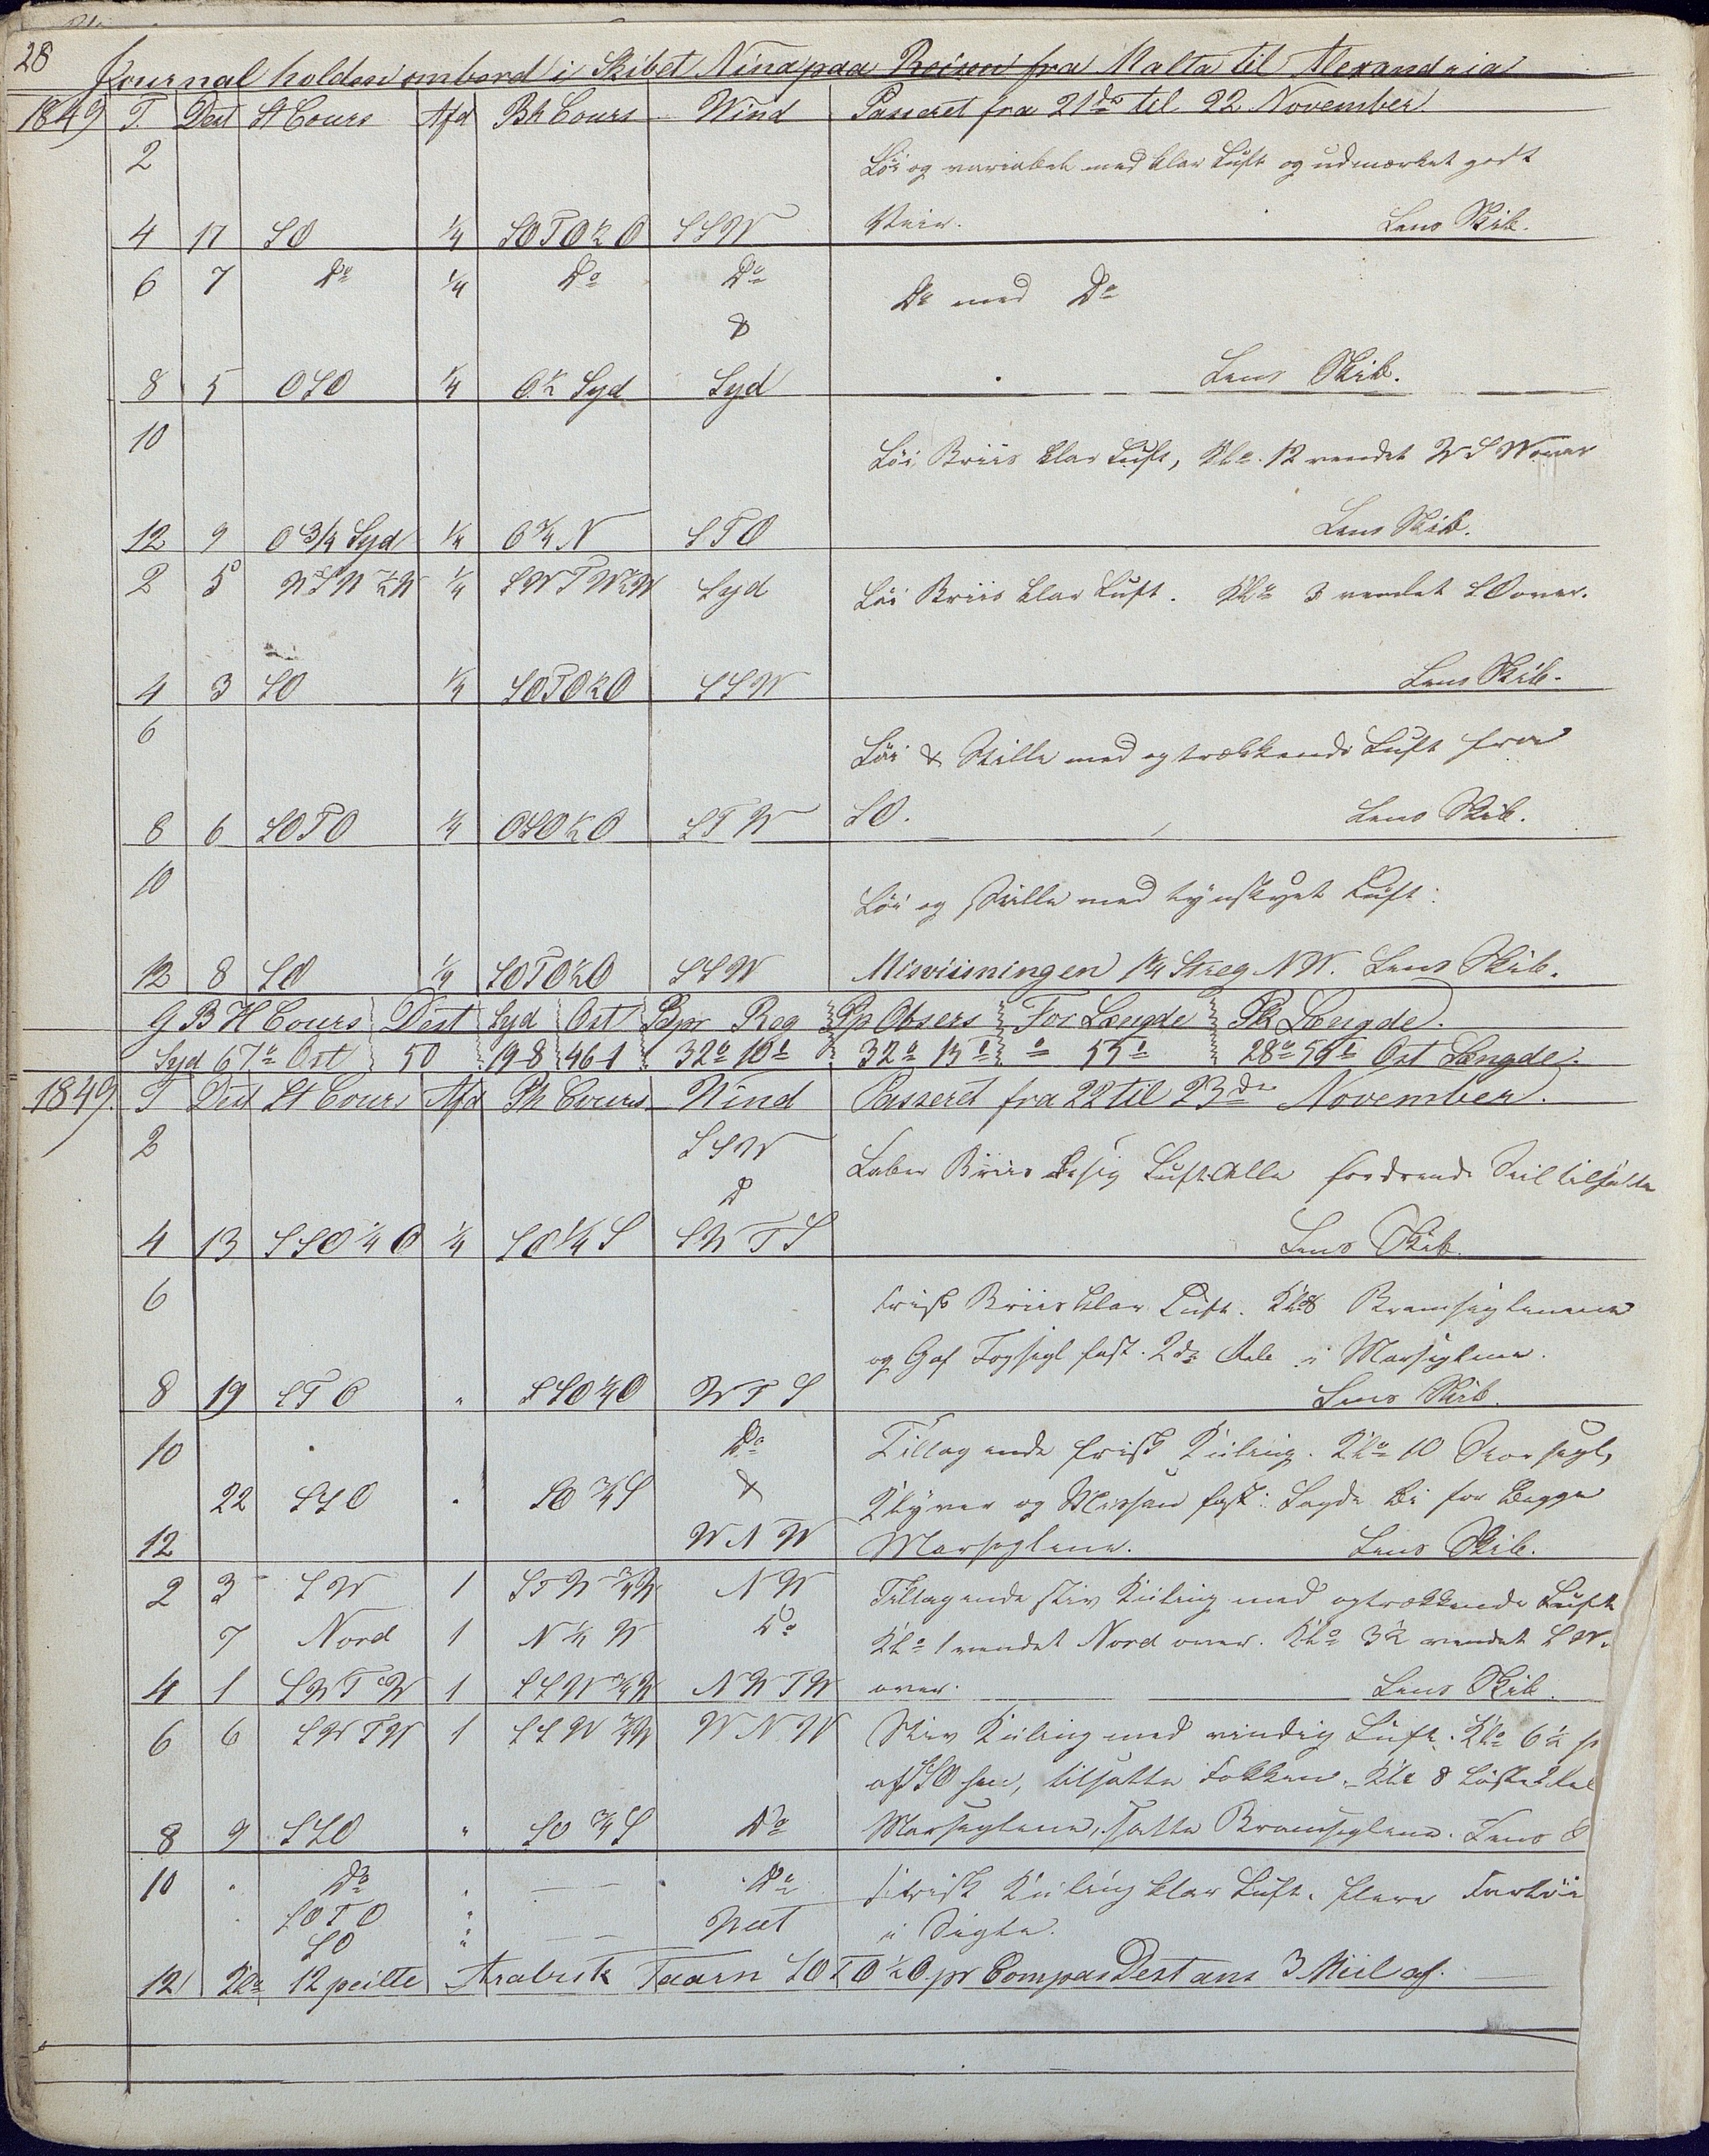 28
Journal holden ombord i Skibet Nina paa Reisen fra Malta til Alexandria
1849 T. Dest St Cours Afd Bh Cours Wind Passeret fra 21de til 22 November
2 Löi og variabel med klar Luft og udmærket godt
4 17 SO 1/4 SOTO½O SSW Veir. Lens Skib.
6 7 Do 1/4 Do Do Do med Do
&
8 5 OSO 1/4 O½ Syd Syd Lens Skib.
10 Löi Briis klar Luft, Klo. 12 vendet WSW over
12 9 O 3/4 Syd 1/4 O¾N STO Lens Skib.
2 5 WSW½W 1/4 SWTW½W Syd Löi Briis klar Luft. Klo 3 vendet SO over.
4 3 SO 1/4 SOTO½O SSW Lens Skib.
6 Löi & Stille med optrækkende Luft fra
8 6 SOTO 1/4 OSO½O STW SO. Lens Skib.
10 Löi og Stille med tynskyet Luft.
12 8 SO 1/4 SOTO½O SSW Misviisningen 1¼ Streg NW. Lens Skib.
G B H Cours Dest Syd Ost Bpr Reg Pp Obsers For Længde Pk Længde.
Syd 67° Ost 50 19-8 46-1 32° 10' 32° 15' " 55' 28° 54' Ost Længde.
1849. T Dest St Cours Afd Bh Cours Wind Passeret fra 22 til 23de November.
2 SSW Laber Briis Luft. Alle fordrende Seil tilsatte
&
4 13 SSO¼O 1/4 SO¼S SWTS Lens Skib.
6 Frisk Briis klar Luft. Klo 8 Bramseglenene
og Gaf Topsegl fast. 2de i Marseglene.
8 19 STO " SSO¾O WTS Lens Skib.
10 Do Tillagende frisk Kuling. Klo 10 Storsegl,
22 SSO " SO¾S & Klyver og Missan fast. Lagde bi for begge
12 WNW Marseglene. Lens Skib.
2 3 SW 1 STW¾W NW Tillagende stiv Kuling med optrækkende Luft
7 Nord 1 N¼W Do Klo 1 vendet Nord over. Klo 3½ vendet SW.
4 1 SWTW 1 SSW¾W NWTW over. Lens Skib.
6 6 SWTW 1 SSW¾W WNW Stiv Kuling med vindig Luft. Klo 6½
af SSO hen, tilsatte Fokken. Klo 8
8 9 SSO " SO¾S Do Marseglene, satte Bramseglene. Lens
10 " Do " Do Frisk Kuling klar Luft. flere Fartöi
" SOTO " West i Sigte.
SO "
12 Klo 12 peilte Arabisk Taarn SOTO½O. pr Compas Destans 3 Miil af.